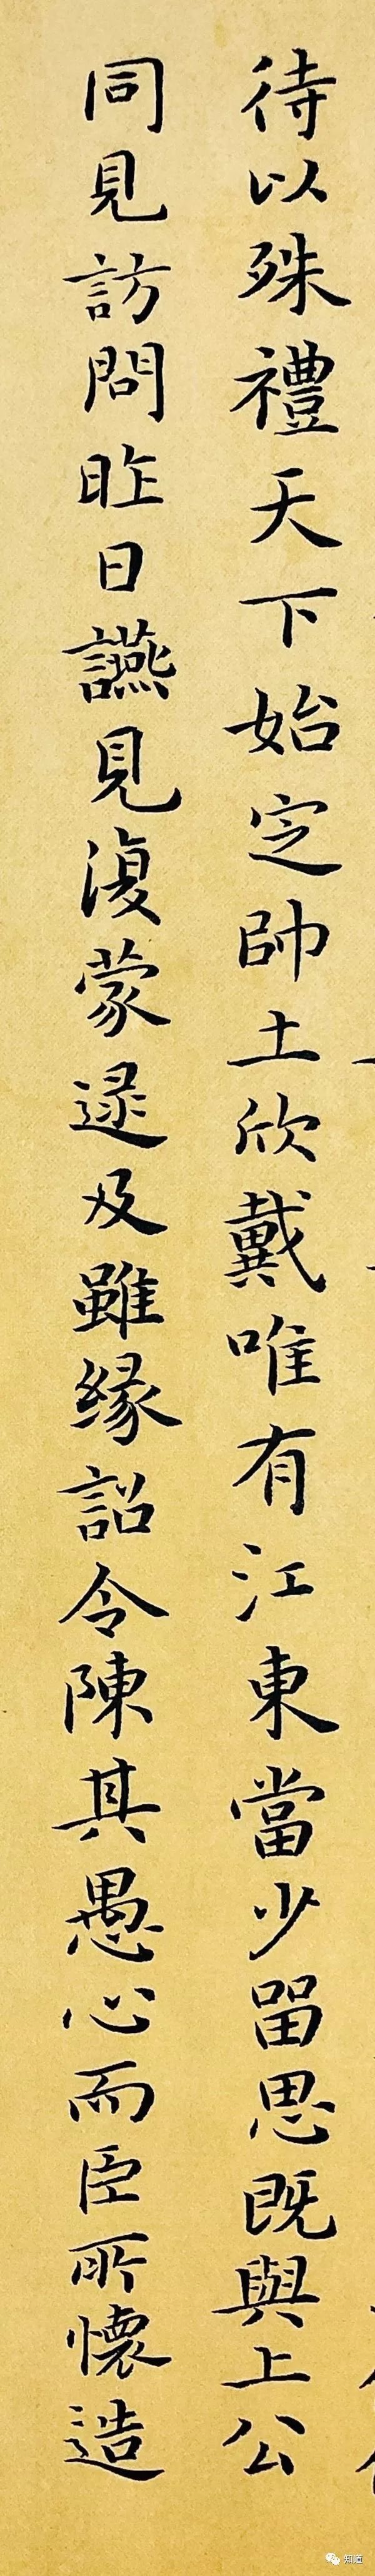 待以殊禮天下始定帥土欣戴唯有江東當少留思既與上公
同見訪問昨日讌見復蒙逮及雖緣詔令陳其愚心而臣所懷造
知道